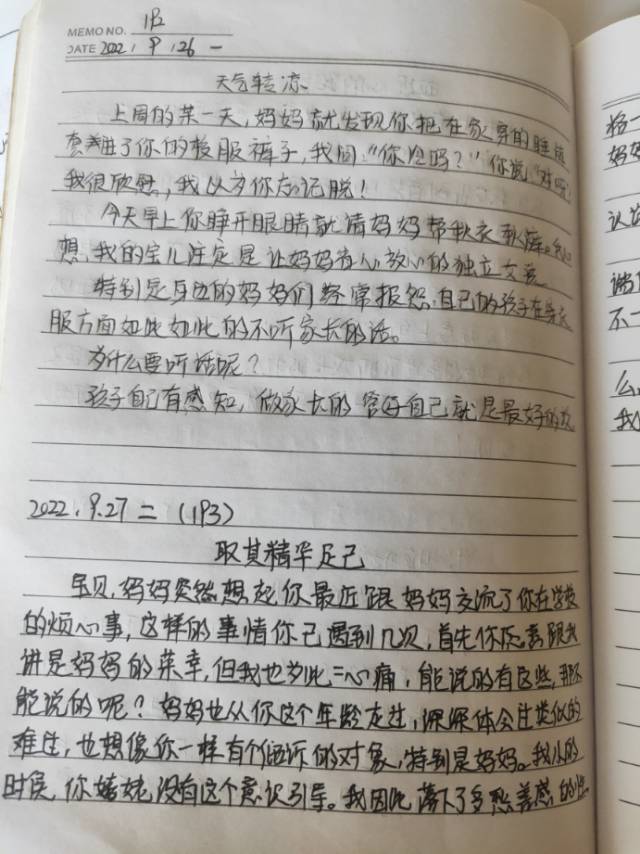 MEMO NO. 1P2
DATE 2022 / 9 / 26 一
天气转凉
上周的某一天，妈妈就发现你把在家穿的睡裤
套进了你的校服裤子，我问：“你冷吗？”你说“对呀！
我很欣慰，我以为你忘记脱！
今天早上你睁开眼睛就请妈妈帮秋衣秋裤。
想，我的宝儿注定是让妈妈省心放心的独立女孩
特别是身边的妈妈们经常报怨自己的孩子在穿衣
服方面如此如此的不听家长的话。
为什么要听话呢？
孩子自己有感知，做家长的管好自己就是最好的
2022.9.27 二（1P3）
取其精华足己
宝贝，妈妈突然想起你最近跟妈妈交流了你在学校
的烦心事，这样的事情你已遇到几次，首先你愿意跟我
讲是妈妈的荣幸，但我也为此心痛，能说的有这些，那不
能说的呢？妈妈也从你这个年龄走过，深深体会过类似的
难过，也想像你一样有个倾诉的对象，特别是妈妈。我小的
时候，你姥姥没有这个意识引导。我因此落下了多愁善感的
拾一
妈妈
认
不一
么，
我